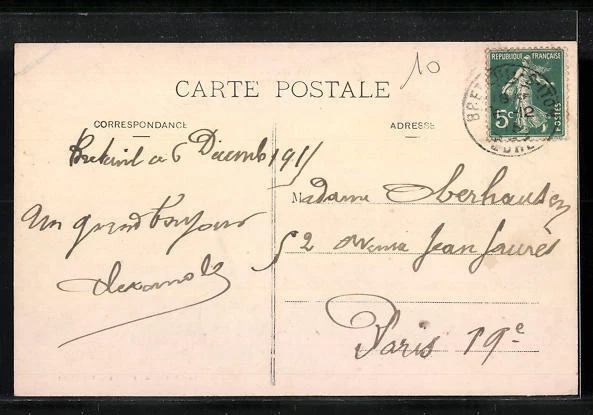 10
CARTE POSTALE
RÉPUBLIQUE FRANÇAISE
5c
POSTES
CORRESPONDANCE
ADRESSE
Breteuil ce 6 Décembre 1911
Un grand bonjour
Madame Oberhausen
52 Avenue Jean Jaurès
Paris 19e